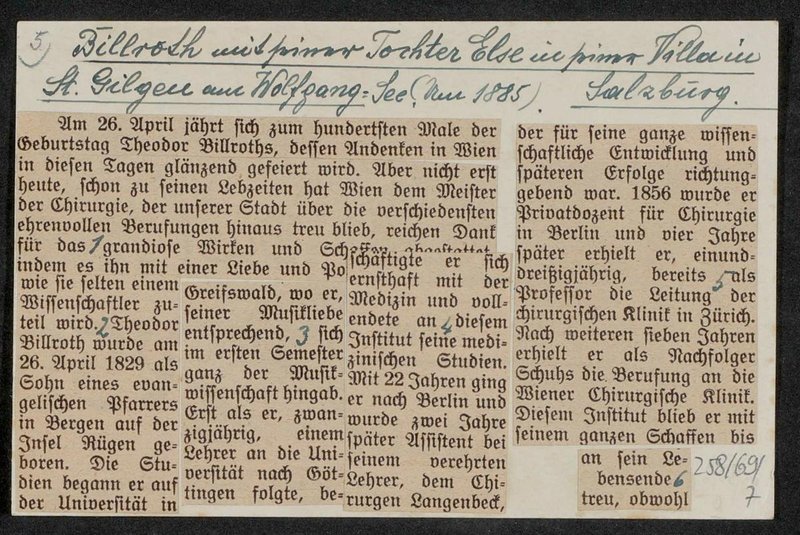 5) Billroth mit seiner Tochter Else in seiner Villa in
St. Gilgen am Wolfgang=See (Um 1885). Salzburg.
Am 26. April jährt sich zum hundertsten Male der
Geburtstag Theodor Billroths, dessen Andenken in Wien
in diesen Tagen glänzend gefeiert wird. Aber nicht erst
heute, schon zu seinen Lebzeiten hat Wien dem Meister
der Chirurgie, der unserer Stadt über die verschiedensten
ehrenvollen Berufungen hinaus treu blieb, reichen Dank
für das 1 grandiose Wirken und Schaffen abgestattet
indem es ihn mit einer Liebe und Po
wie sie selten einem
Wissenschaftler zu-
teil wird. 2 Theodor
Billroth wurde am
26. April 1829 als
Sohn eines evan-
gelischen Pfarrers
in Bergen auf der
Insel Rügen ge-
boren. Die Stu-
dien begann er auf
der Universität in
Greifswald, wo er,
seiner Musikliebe
entsprechend, 3 sich
im ersten Semester
ganz der Musik-
wissenschaft hingab.
Erst als er, zwan-
zigjährig, einem
Lehrer an die Uni-
versität nach Göt-
tingen folgte, be-
schäftigte er sich
ernsthaft mit der
Medizin und voll-
endete an 4 diesem
Institut seine medi-
zinischen Studien.
Mit 22 Jahren ging
er nach Berlin und
wurde zwei Jahre
später Assistent bei
seinem verehrten
Lehrer, dem Chi-
rurgen Langenbeck,
der für seine ganze wissen-
schaftliche Entwicklung und
späteren Erfolge richtung-
gebend war. 1856 wurde er
Privatdozent für Chirurgie
in Berlin und vier Jahre
später erhielt er, einund-
dreißigjährig, bereits 5 als
Professor die Leitung der
chirurgischen Klinik in Zürich.
Nach weiteren sieben Jahren
erhielt er als Nachfolger
Schuhs die Berufung an die
Wiener Chirurgische Klinik.
Diesem Institut blieb er mit
seinem ganzen Schaffen bis
an sein Le-
bensende 6
treu, obwohl
258/69/
7